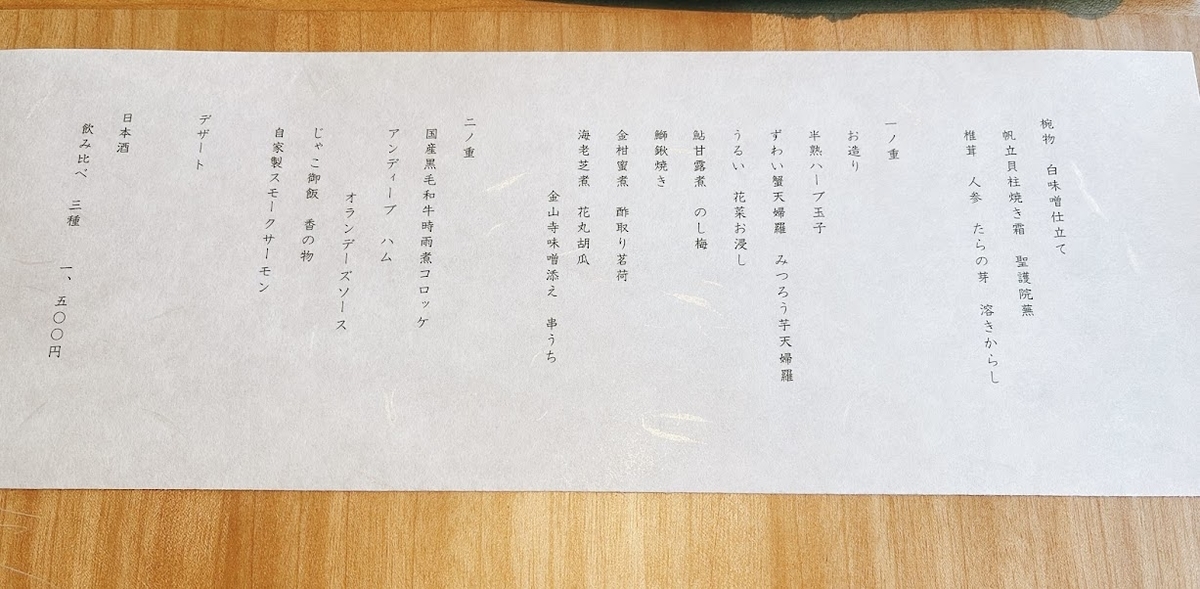 椀物　白味噌仕立て
帆立貝柱焼き霜　聖護院蕪
椎茸　人参　たらの芽　溶きからし
一ノ重
お造り
半熟ハーブ玉子
ずわい蟹天婦羅　みつろう芋天婦羅
うるい　花菜お浸し
鮎甘露煮　のし梅
鰤鍬焼き
金柑蜜煮　酢取り茗荷
海老芝煮　花丸胡瓜
金山寺味噌添え　串うち
二ノ重
国産黒毛和牛時雨煮コロッケ
アンディーブ　ハム
オランデーズソース
じゃこ御飯　香の物
自家製スモークサーモン
デザート
日本酒
飲み比べ　三種　一、五〇〇円